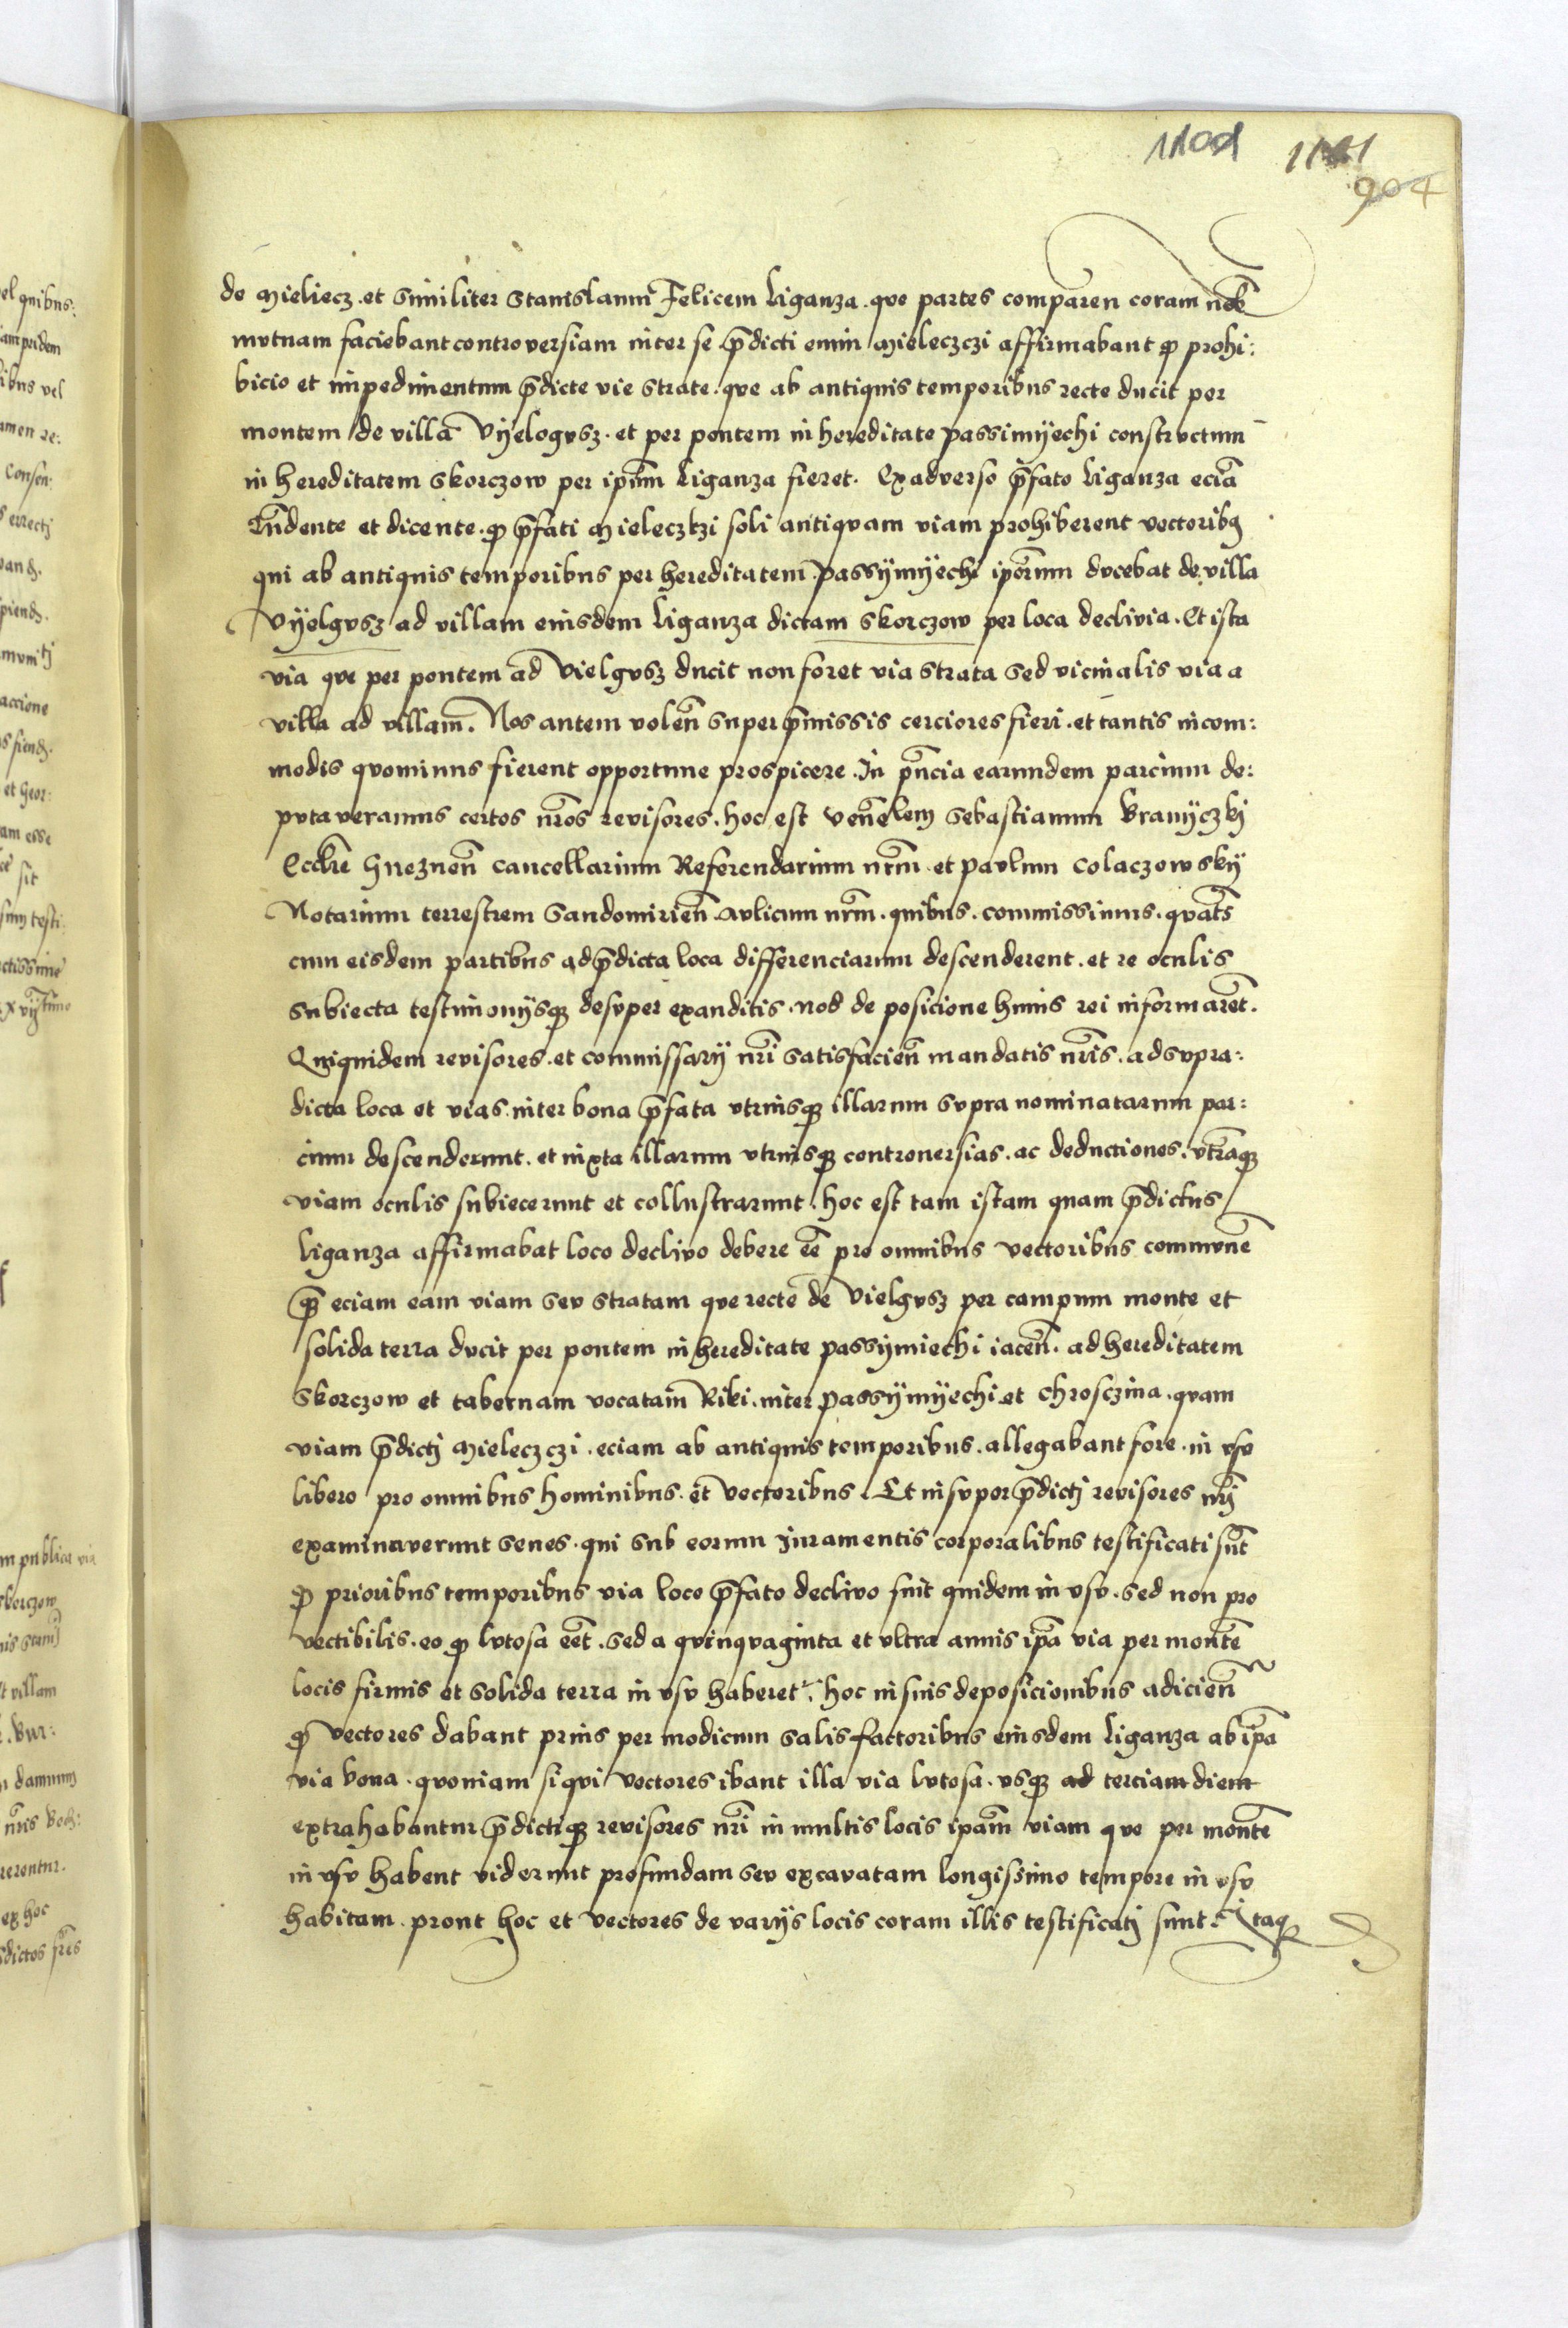 1101 1141
904
de Mieliecz . et similiter Stanislaum Felicem Liganza . que partes comparen̄ coram nob̄
mutuam faciebant controversiam inter se p̄dicti enim Mieleczczi affirmabant ꝙ prohi:
bicio et impedimentum p̄dicte vie strate . que ab antiquis temporibus recte ducit per
montem de villa Vÿelogvsz . et per pontem in hereditate passimÿechi constructum
in hereditatem Skorczow per ip̄um Liganza fieret . Ex adverso p̄fato Liganza eciā
n̄dente et dicente . ꝙ p̄fati Mieleczczi soli antiquam viam prohiberent vectoribꝫ
qui ab antiquis temporibus per hereditatem passÿmÿechi ip̄orum ducebat de villa
Vÿelgvsz ad villam eiusdem Liganza dictam Skorczow per loca declivia . Et ista
via que per pontem ad Vielgvsz ducit non foret via strata sed vicinalis via a
villa ad villam . Nos autem volen̄ super p̄missis cerciores fieri . et tantis incom:
modis quominus fierent opportune prospicere . In p̄ncia earundem parcium de:
putaveramus certos nr̄os revisores . hoc est ven̄elem Sebastianum Branÿczkj
Eccl̄ie Gneznen̄ Cancellarium Referendarium nr̄m . et Paulum Colaczowskÿ
Notarium terrestrem Sandomirien̄ Aulicum nr̄m . quibus . commissimus . quat̄s
cum eisdem partibus ad p̄dicta loca differenciarum descenderent . et re oculis
subiecta testimonÿsqꝫ desuper exauditis . nos de posicione huius rei informaren̄t .
Quiquidem revisores . et commissarÿ nr̄i satisfacien̄ mandatis nr̄is . ad supra:
dicta loca et vias inter bona p̄fata utriusqꝫ illarum supra nominatarum par:
cium descenderunt . et iuxta illarum utriusqꝫ controversias . ac deductiones . utr̄aqꝫ
viam oculis subiecerunt et collustrarunt . hoc est tam istam quam p̄dictus
Liganza affirmabat loco declivo debere ee̅ pro omnibus vectoribus commune̅
qꝫ eciam eam viam seu stratam que recte de Vielgvsz per campum monte et
solida terra ducit per pontem in hereditate passÿmiechi iacen̄ . ad hereditatem
Skorczow et tabernam vocatam Riki . inter passÿmÿechi et Chrosczina . quam
viam p̄dictj Mieleczczi . eciam ab antiquis temporibus . allegabant fore . in usu
libero pro omnibus hominibus . et vectoribus . Et insuper p̄dictj revisores nr̄j
examinaverunt senes . qui sub eorum juramentis corporalibus testificati su̅t
ꝙ prioribus temporibus via loco p̄fato declivo fuit quidem in usu . sed non pro
vectibilis . eo ꝙ lutosa ee̅t . sed a quinquaginta et ultra annis ip̄a via per monte̅
locis firmis et solida terra in usu haberet² . hoc in suis deposicionibus adicien̄
ꝙ vectores dabant prius per modicum salis factoribus eiusdem Liganza ab ip̄a
via bona . quoniam siqui vectores ibant illa via lutosa . usqꝫ ad terciam diem
extrahabantur p̄dictiqꝫ revisores nr̄i in multis locis ip̄am viam que per monte̅
in usu habent viderunt profundam seu excavatam longissimo tempore in usu
habitam . prout hoc et vectores de varÿs locis coram illis testificatj sunt . Itaqꝫ